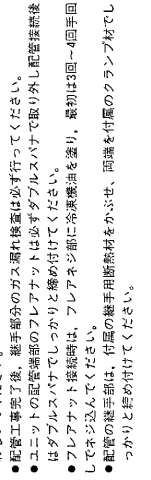 ●配管工事完了後、継手部分のガス漏れ検査は必ず行ってください。
●ユニットの配管端部のフレアナットは必ずダブルスパナで取り外し配管接続後
はダブルスパナでしっかりと締め付けてください。
●フレアナット接続時は、フレアネジ部に冷凍機油を塗り、最初は3回〜4回手回
しでネジ込んでください。
●配管の継手部は、付属の継手用断熱材をかぶせ、両端を付属のクランプ材でし
っかりと締め付けてください。